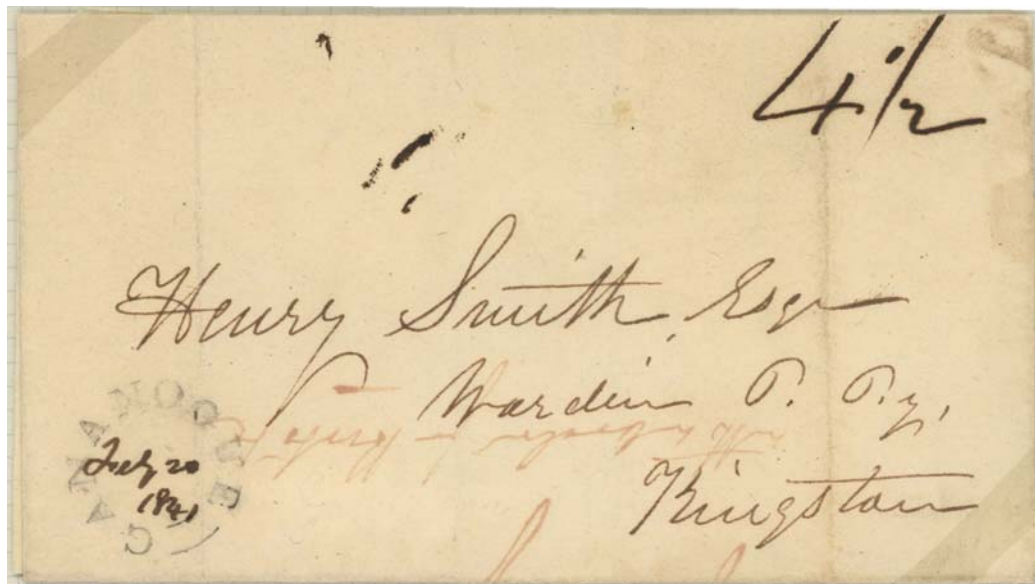 4 1/2
Henry Smith, Esqr
Warden P. Py,
Kingston
GANANOQUE
July 20
1841